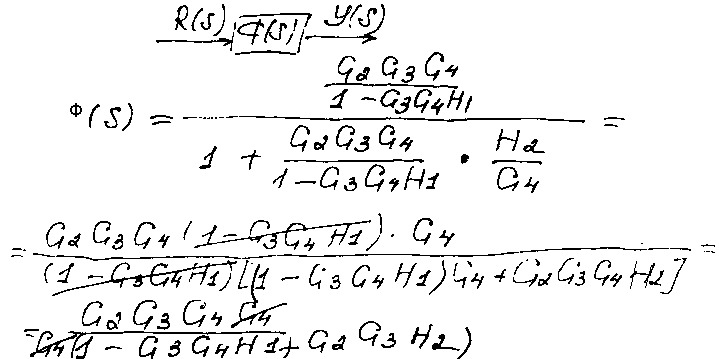 R(S) Φ(S) Y(S)
G2 G3 G4
1 - G3G4H1
Φ(S) = =
1 + G2G3G4 · H2
1 - G3G4H1 G4
= G2 G3 G4 (1 - G3G4 H1) · G4 =
(1 - G3G4H1)[(1 - G3 G4 H1) G4 + G2G3G4 H2]
= G2 G3 G4 G4
G4(1 - G3G4H1 + G2 G3 H2)